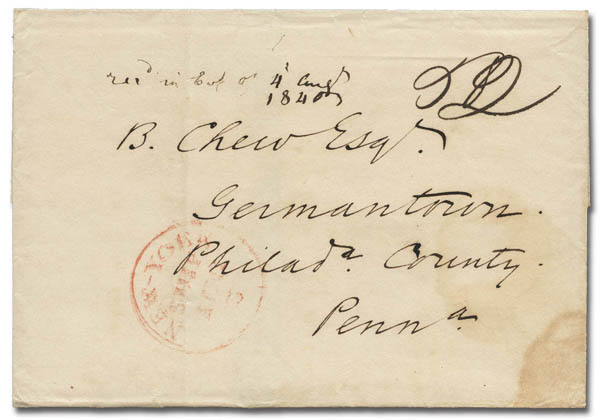 recd in 4 Augt
1840
B. Chew Esqr.
Germantown.
Philada. County.
Penna.
NEW-YORK
SHIP